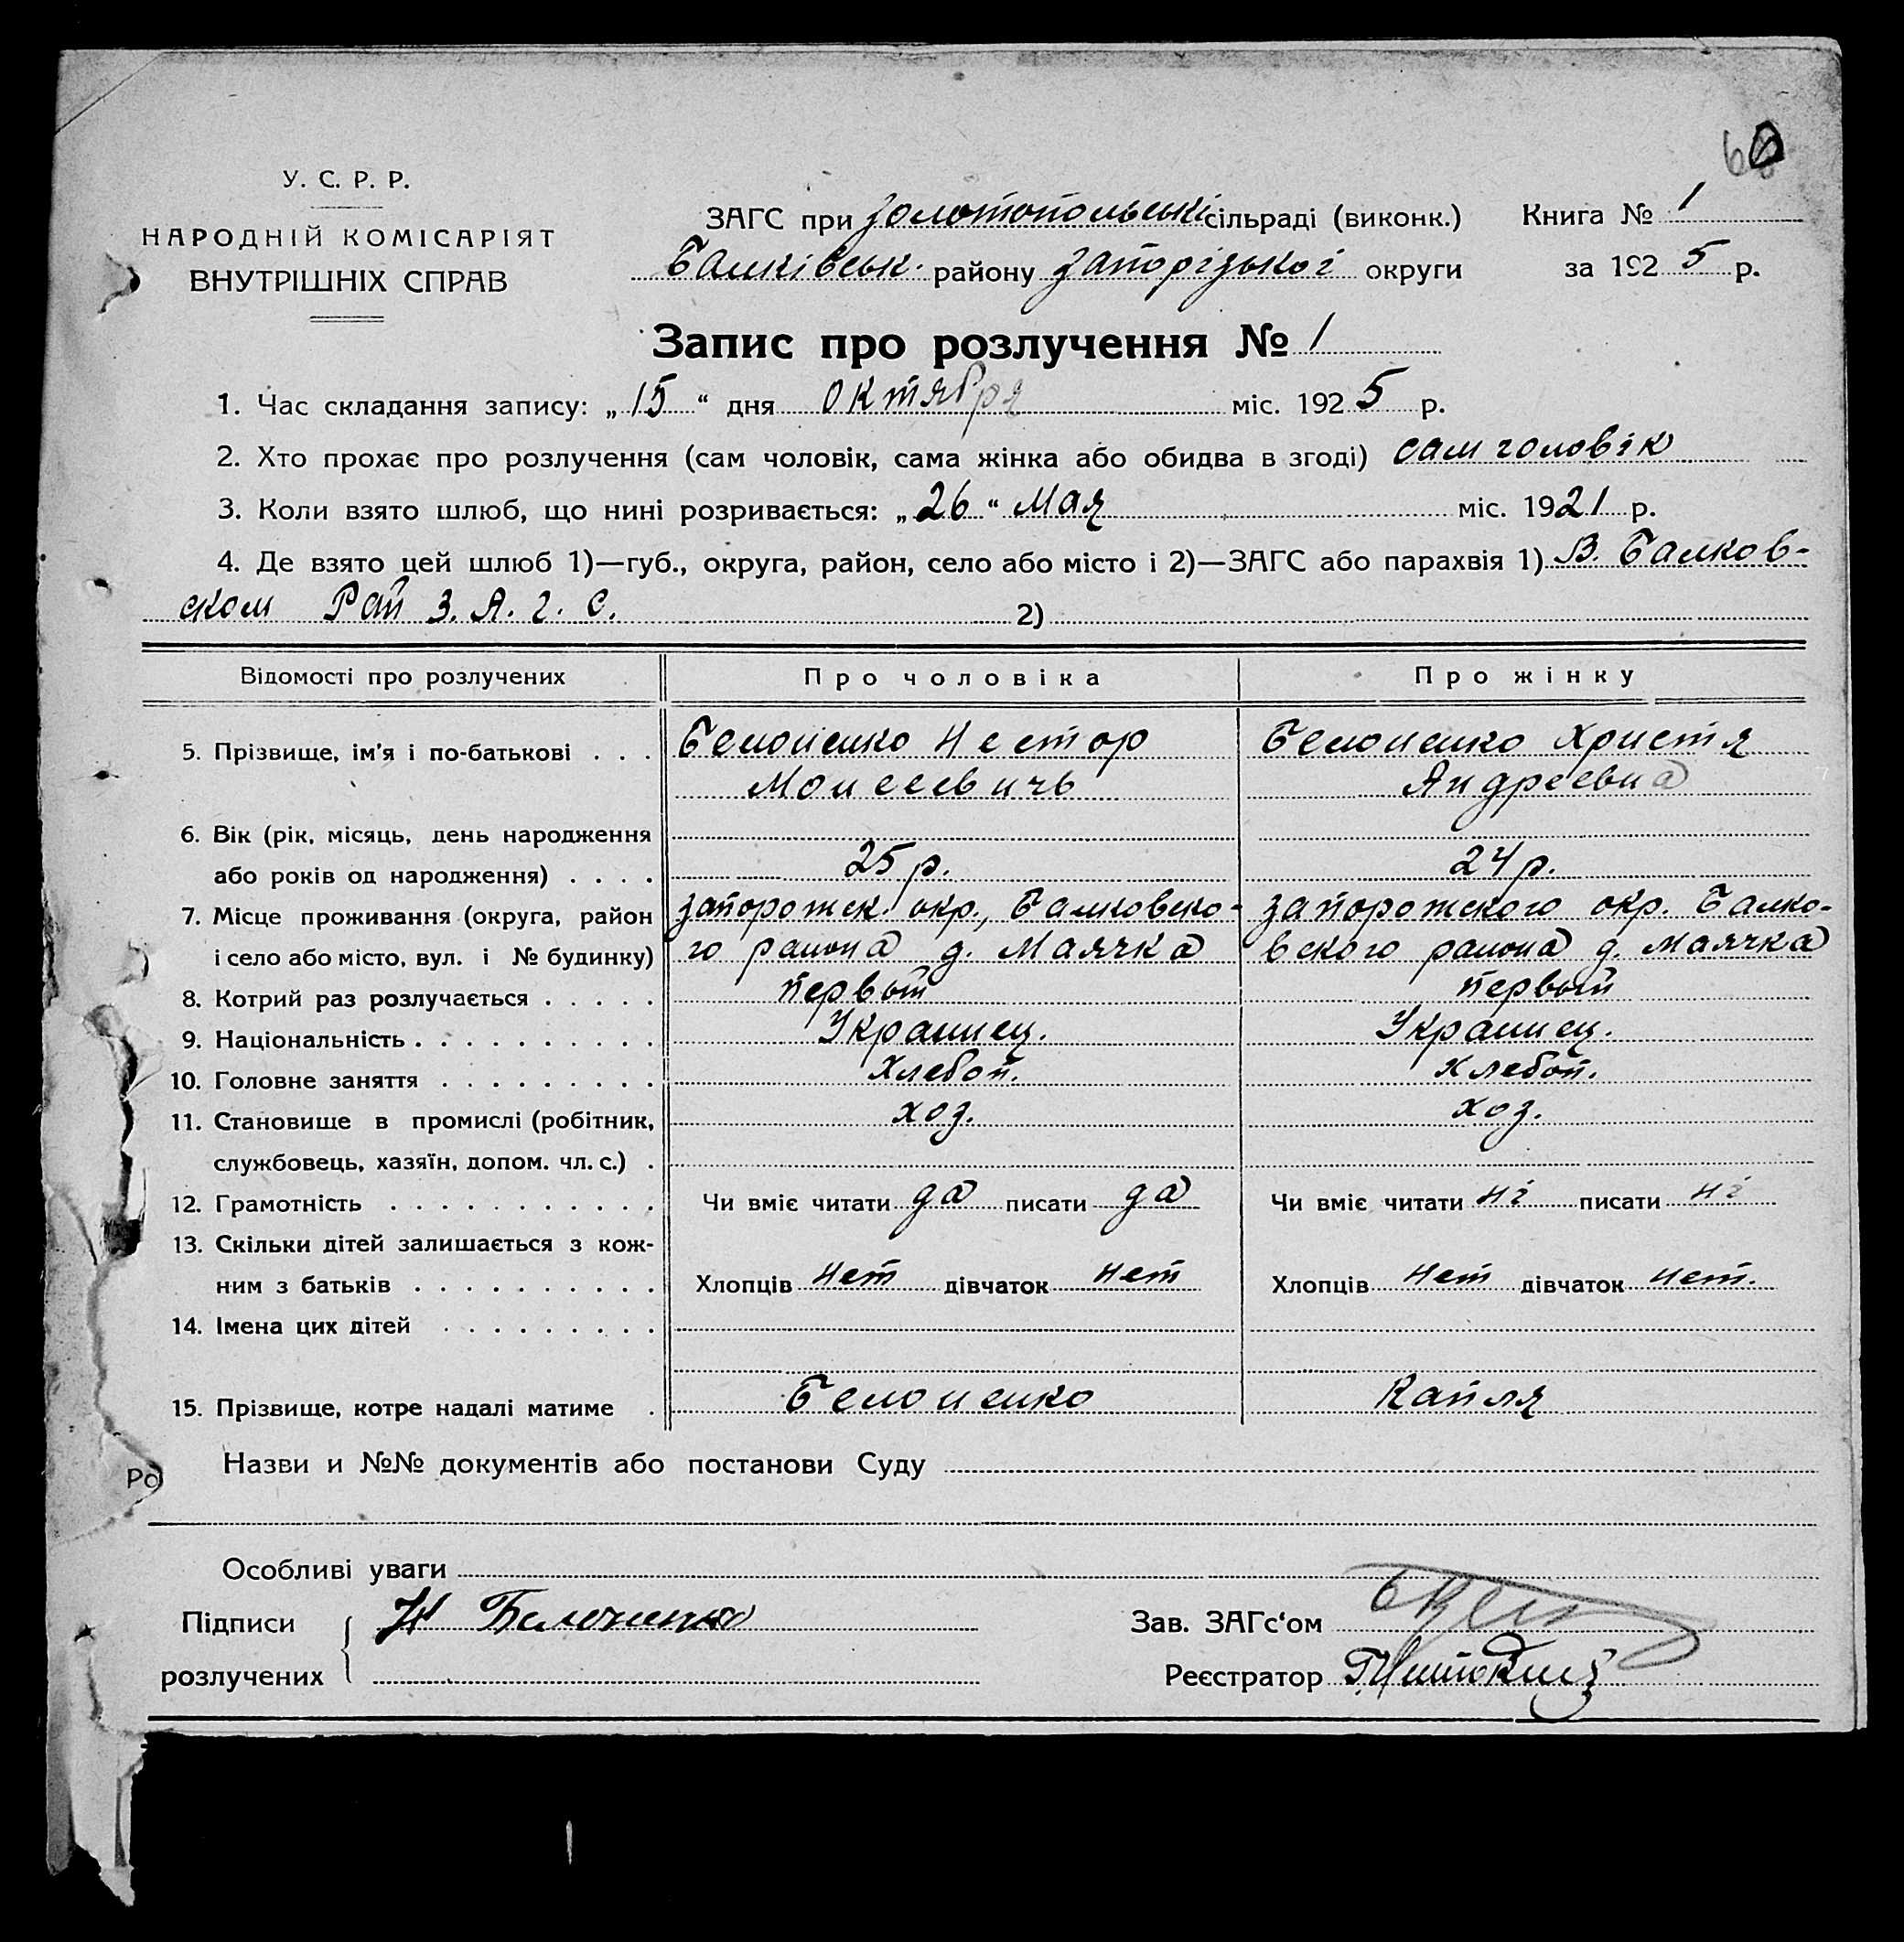 60
У. С. Р. Р.
НАРОДНІЙ КОМІСАРІЯТ
ВНУТРІШНІХ СПРАВ
ЗАГС при Золотопольські сільраді (виконк.) Книга № 1
Балківськ. району Запорізької округи за 1925 р.
Запис про розлучення № 1
1. Час складання запису: „15“ дня октября міс. 1925 р.
2. Хто прохає про розлучення (сам чоловік, сама жінка або обидва в згоді) сам чоловік
3. Коли взято шлюб, що нині розривається: „26“ Мая міс. 1921 р.
4. Де взято цей шлюб 1)—губ., округа, район, село або місто і 2)—ЗАГС або парахвія 1) В. Балков-
ском Рай З. А. Г. С. 2)
Відомості про розлучених Про чоловіка Про жінку
5. Прізвище, ім'я і по-батькові . . . Белоненко Нестор Белоненко Христя
Моисеевичь Андреевна
6. Вік (рік, місяць, день народження
або років од народження) . . . . 25 р. 24 р.
7. Місце проживання (округа, район Запорожск. окр., Балковско- Запорожского окр. Балко-
і село або місто, вул. і № будинку) го района д. Маячка вского района д. Маячка
8. Котрий раз розлучається . . . . . первый первый
9. Національність . . . . . . . . . . Украинец. Украинец.
10. Головне заняття . . . . . . . . . Хлебоп. Хлебоп.
11. Становище в промислі (робітник, хоз. хоз.
службовець, хазяїн, допом. чл. с.) .
12. Грамотність . . . . . . . . . . . Чи вміє читати да писати да Чи вміє читати ні писати ні
13. Скільки дітей залишається з кож-
ним з батьків . . . . . . . . . . Хлопців нет дівчаток нет Хлопців нет дівчаток нет.
14. Імена цих дітей . . . . . . . . .
15. Прізвище, котре надалі матиме . Белоненко Капля
Ро
Назви и №№ документів або постанови Суду
Особливі уваги
Підписи Н Белоненко Зав. ЗАГс‘ом
розлучених Реєстратор